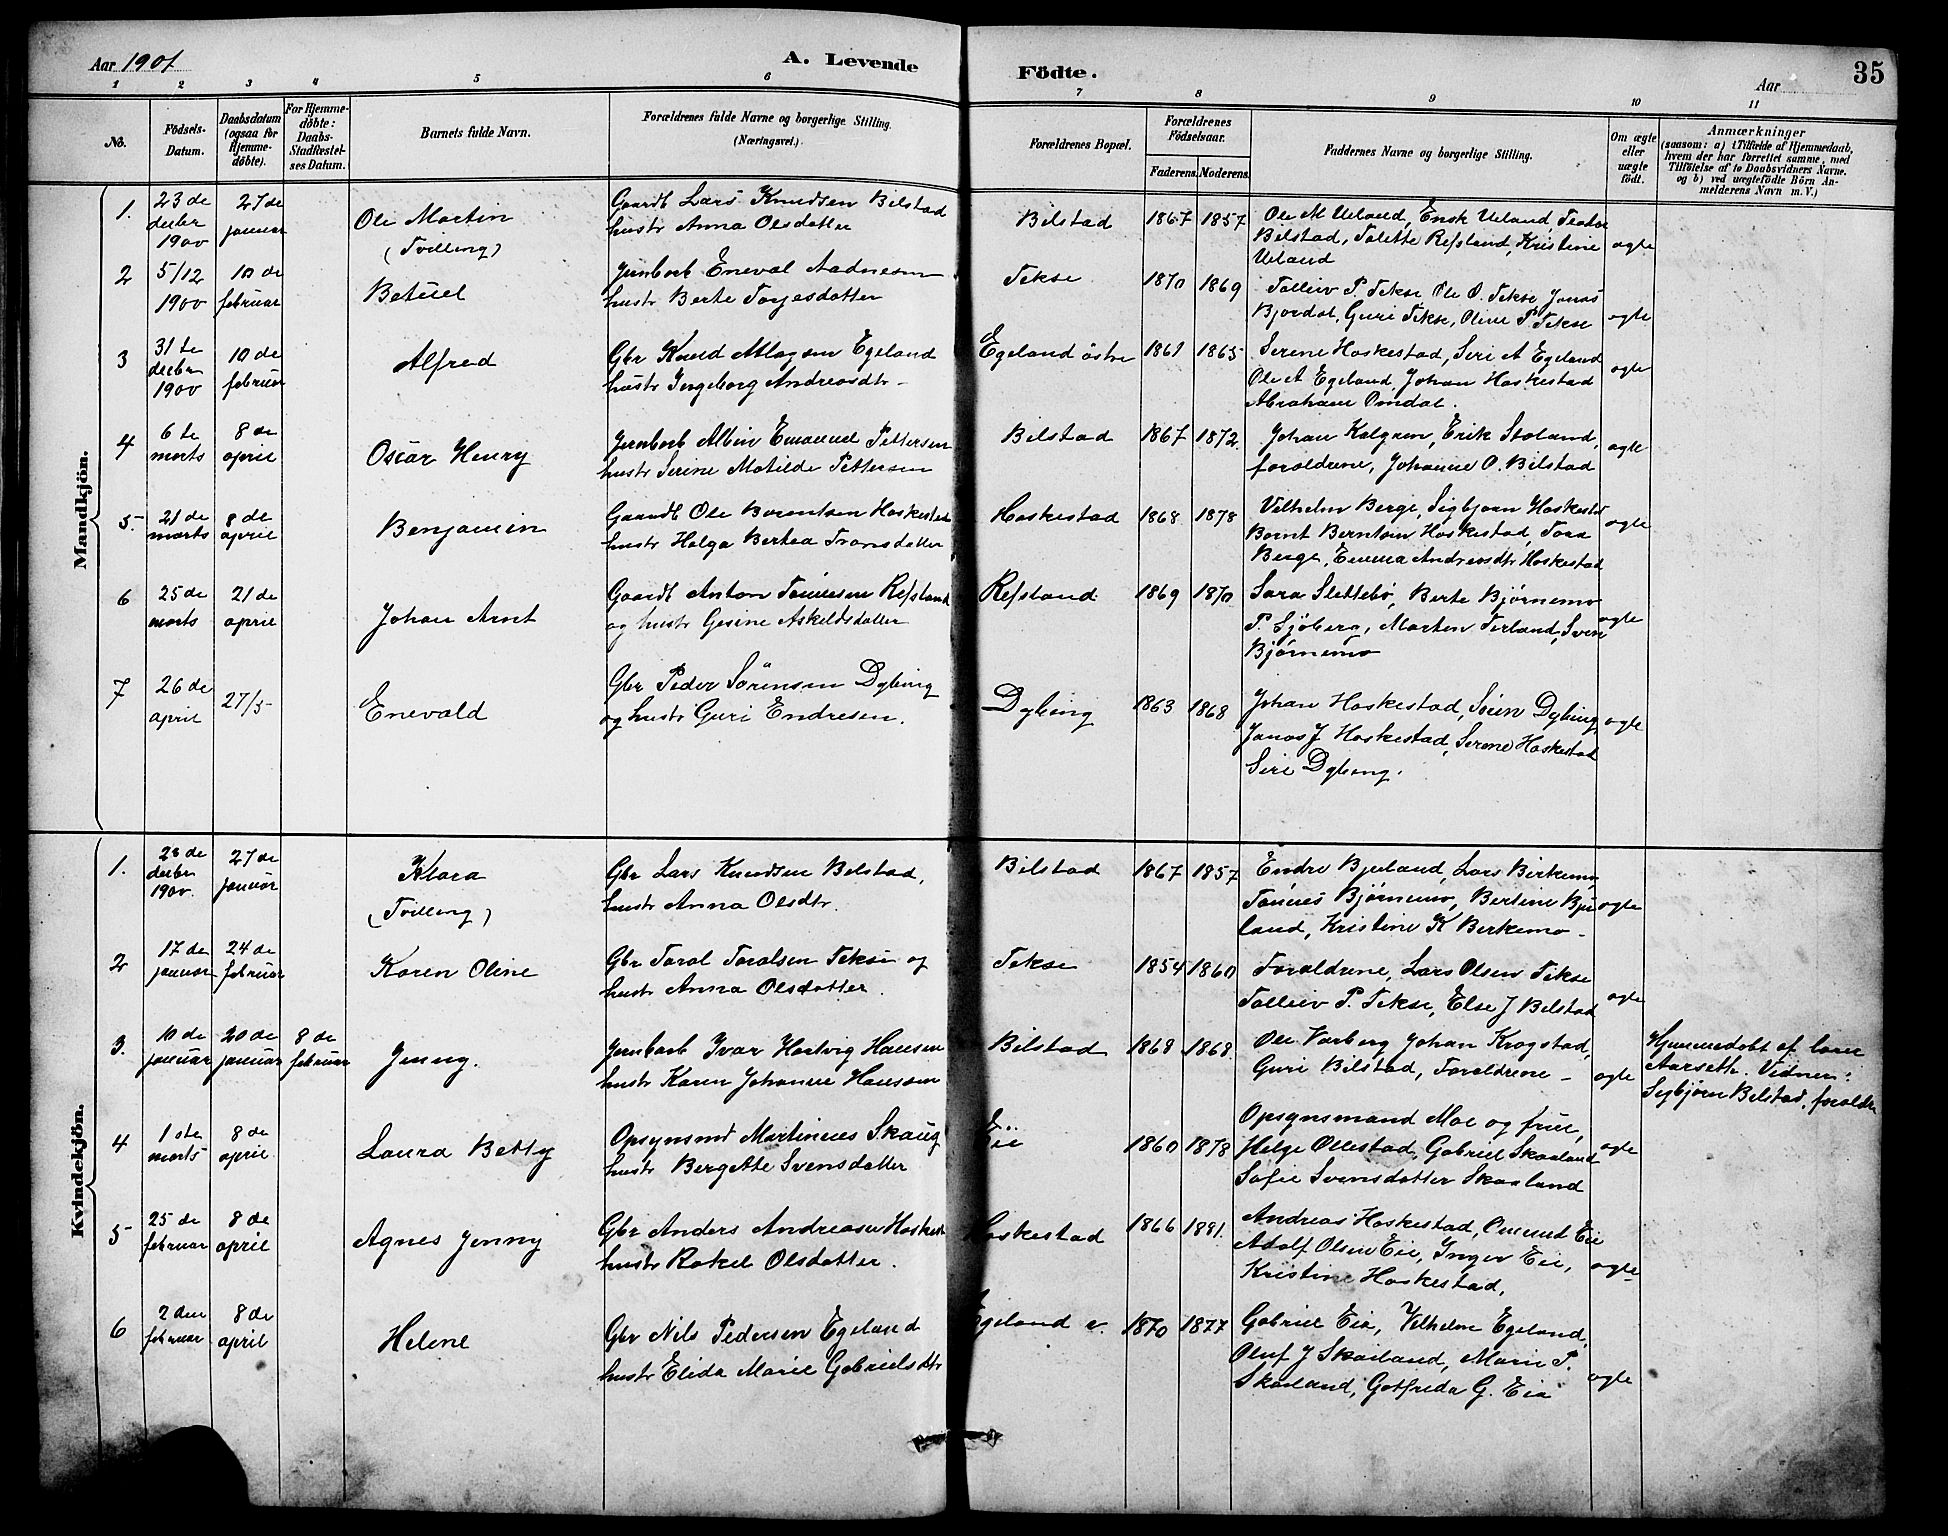 Aar 1901
A. Levende Födte.
Aar
35
1 2 3 4 5 6 7 8 9 10 11
No.
Födsels-Datum.
Daabsdatum (ogsaa for Hjemme-döbte).
For Hjemme-döbte: Daabs-Stadfæstel-ses Datum.
Barnets fulde Navn.
Forældrenes fulde Navne og borgerlige Stilling.
(Næringsvei.)
Forældrenes Bopæl.
Forældrenes Födselsaar.
Faderens. Moderens.
Faddernes Navne og borgerlige Stilling.
Om ægte eller uægte födt.
Anmærkninger
(saasom: a) i Tilfælde af Hjemmedaab,
hvem der har forrettet samme, med
Tilföielse af to Daabsvidners Navne.
og b) ved uægtefödte Börn An-
melderens Navn m. V.)
Mandkjön.
1. 23 de decbr 1900 27 de januar Ole Martin (Tvilling)
Gaardb Lars Knudsen Bilstad
hustr Anna Olsdatter
Bilstad 1867 1857
Ole M Ueland, Enok Ueland, Teodor
Bilstad, Tolette Refsland, Kristine
Ueland
ægte
2 5/12 1900 10 de februar Betuel
Jernbarb Eneval Aadnesen
hustr Berte Torjesdatter
Tekse 1870 1869
Tolleiv P. Tekse, Ole O. Tekse, Jonas
Bjordal, Guri Tekse, Oline P. Tekse
ægte
3 31 te decbr 1900 10 de februar Alfred
Gbr Knud Atlagsen Egeland
hustr Ingeborg Andreasdtr
Egeland östre 1861 1865
Serene Haskestad, Siri A Egeland
Ole A Egeland, Johan Haskestad
Abraham Omdal.
ægte
4 6 te marts 8 de april Oscar Henry
Jernbarb Albin Emanuel Pettersen
hustr Serine Matilde Pettersen
Bilstad 1867 1872
Johan Kalgren, Erik Stoland,
forældrene, Johanne O. Bilstad
ægte
5. 21 de marts 8 de april Benjamin
Gaardb Ole Berentsen Haskestad
hustr Helga Bertea Transdatter
Haskestad 1868 1878
Vilhelm Berge, Sigbjørn Haskestad
Bernt Berntsen Haskestad, Tora
Berge, Emma Andreasdtr Haskestad
ægte
6 25 de marts 21 de april Johan Arnt
Gaardb Anton Tönnesen Refsland
og hustr Gesine Askeldsdatter
Refsland 1869 1870
Sara Slettebö, Berte Bjørnemo
P. Sjöberg, Morten Terland, Sven
Bjørnemo
ægte
7 26 de april 27/5 Enevald
Gbr Peder Sörensen Dybing
og hustr Guri Endresen.
Dybing 1863 1868
Johan Haskestad, Sören Dybing
Jonas J Haskestad, Serene Haskestad
Siri Dybing.
ægte
Kvindekjön.
1. 23 de decbr 1900. 27 de januar Klara (Tvilling)
Gbr Lars Knudsen Bilstad,
hustr Anna Olsdtr.
Bilstad 1867 1857
Endre Bjuland, Lars Birkemo,
Tönnes Bjørnemo, Bertine Bju
land, Kristine K Berkemo
ægte
2 17 de januar 24 de februar Karen Oline
Gbr Tarol Tarolsen Tekse og
hustr Anna Olsdatter.
Tekse 1854 1860
Forældrene, Lars Olsen Tekse
Tolleiv P. Tekse, Else J Bilstad
ægte
3. 10 de januar 20 de januar 8 de februar Jenny.
Jernbarb Ivar Hartvig Hansen
hustr Karen Johanne Hansen
Bilstad 1868 1868.
Ole Varberg Johan Krogstad,
Guri Bilstad, Forældrene
ægte
Hjemmedøbt af lærer
Aarseth. Vidner:
Sigbjørn Bilstad, forældr
4 1 ste marts 8 de april Laura Betty
Opsynsmd Martinius Skaug
hustr Bergette Svensdatter
Eie 1860 1878
Opsynsmand Moe og frue,
Helge Ollestad, Gabriel Skaaland
Sofie Svensdatter Skaaland
ægte
5 25 de februar 8 de april Agnes Jenny
Gbr Anders Andreasen Haskest
hustr Rakel Olsdatter.
Haskestad 1866 1881.
Andreas Haskestad, Omund Eie
Adolf Olsen Eie, Inger Eie,
Kristine Haskestad,
ægte
6 2 den februar 8 de april Helene
Gbr Nils Pedersen Egeland
hustr Elida Marie Gabrielsdtr
Egeland v. 1870 1877
Gabriel Eia, Vilhelm Egeland,
Oluf J Skaaland, Marie P.
Skaaland, Gotfreda G. Eia
ægte